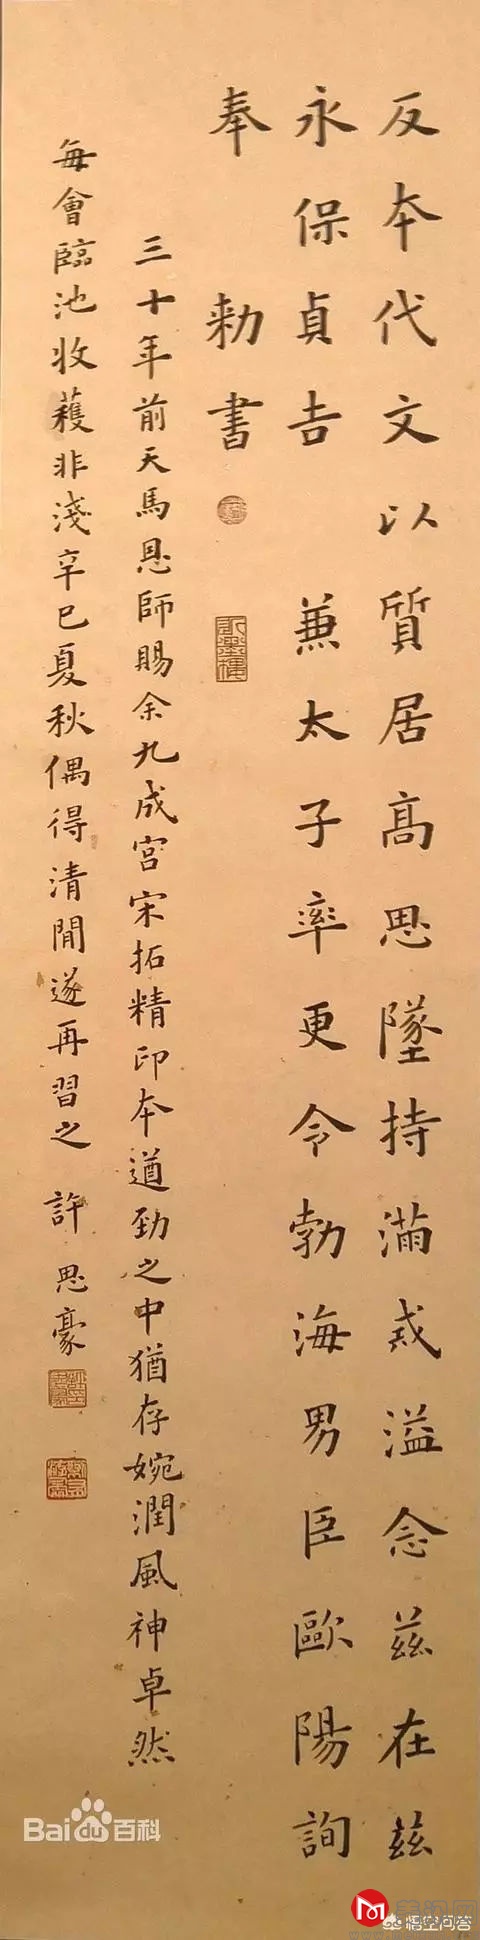 反本代文以質居高思墜持滿戒溢念茲在茲
永保貞吉 兼太子率更令勃海男臣歐陽詢
奉 勅書
三十年前天馬恩師賜余九成宮宋拓精印本遒勁之中猶存婉潤風神卓然
每會臨池收穫非淺辛巳夏秋偶得清閒遂再習之 許思豪
Baidu百科
悟空问答